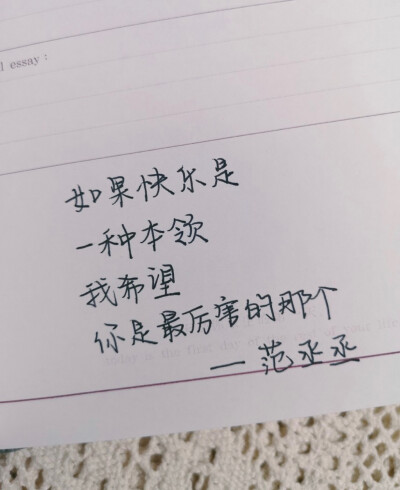 l essay :
如果快乐是
一种本领
我希望
你是最厉害的那个
— 范丞丞